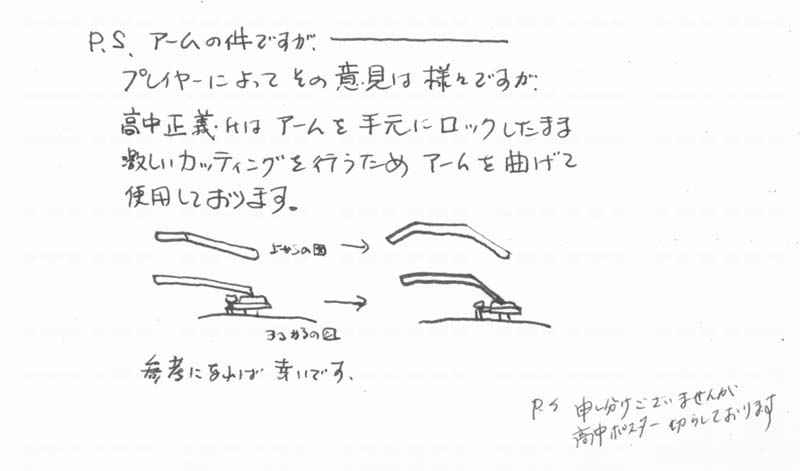 P.S. アームの件ですが、
プレイヤーによって その意見は 様々ですが、
高中正義氏は アームを 手元に ロックしたまま
激しいカッティングを行うため アームを 曲げて
使用しております。
上からの図
ヨコからの図
参考になれば 幸いです、
P.S 申し分けございませんが
高中ポスター 切らしております